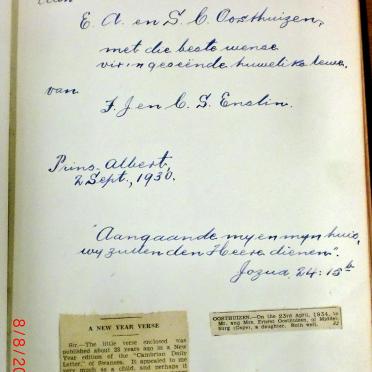 Aan
E. A. en S. C. Oosthuizen,
met die beste wense
vir 'n geseënde huweliks lewe,
van
F. J en C. S. Enslin.
Prins Albert,
2 Sept., 1930.
"Aangaande my en myn huis,
wy zullen den Heere dienen".
Jozua 24:15b
A NEW YEAR VERSE
Sir.—The little verse enclosed was
published about 23 years ago in a New
Year edition of the "Cambrian Daily
Letter," of Swansea. It appealed to me
very much as a child, and perhaps it
OOSTHUIZEN.—On the 23rd April, 1934, to
Mr. and Mrs. Ernest Oosthuizen, of Middel-
burg (Cape), a daughter. Both well.
8/8/20